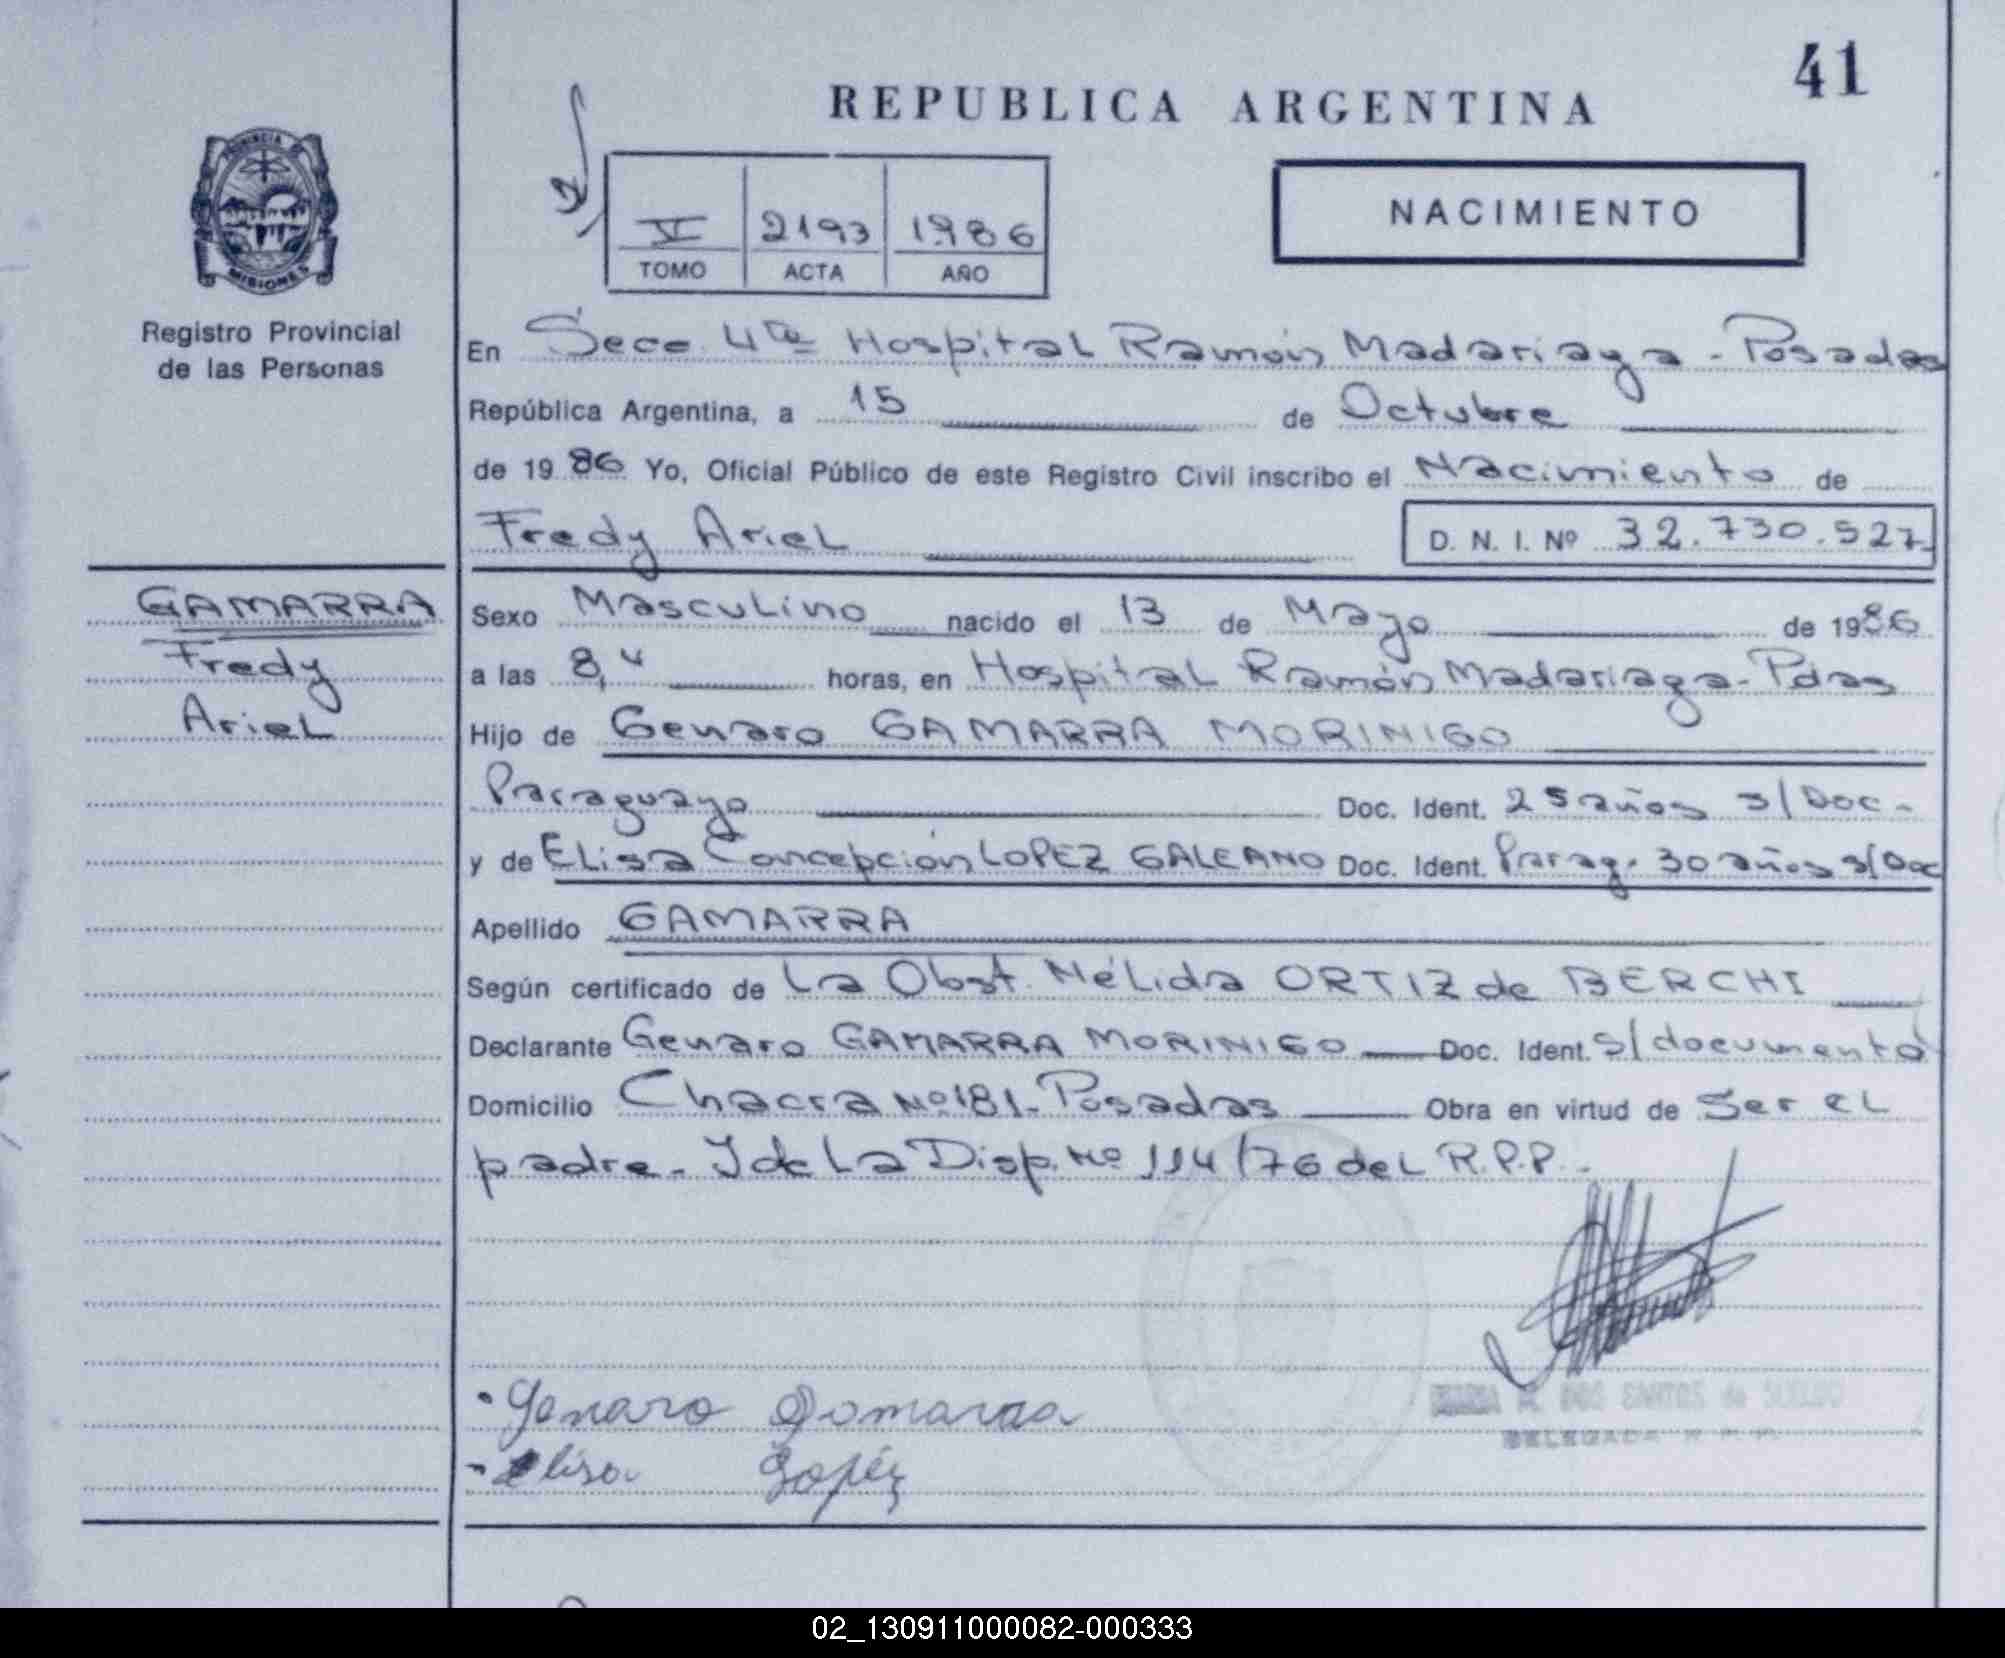 41
REPUBLICA ARGENTINA
PROVINCIA DE
MISIONES
V 2193 1986
TOMO ACTA AÑO
NACIMIENTO
Registro Provincial
de las Personas
En Secc. 4ta Hospital Ramón Madariaga - Posadas
República Argentina, a 15 de Octubre
de 1986 Yo, Oficial Público de este Registro Civil inscribo el Nacimiento de
Fredy Ariel D. N. I. Nº 32.730.527
GAMARRA
Fredy
Ariel
Sexo Masculino nacido el 13 de Mayo de 1986
a las 8, horas, en Hospital Ramón Madariaga - Pdas
Hijo de Genaro GAMARRA MORINIGO
Paraguayo Doc. Ident. 25 años s/Doc-
y de Elisa Concepción LOPEZ GALEANO Doc. Ident. Parag. 30 años s/Doc
Apellido GAMARRA
Según certificado de La Obst. Nélida ORTIZ de BERCHI
Declarante Genaro GAMARRA MORINIGO Doc. Ident. s/documento
Domicilio Chacra Nº 181- Posadas Obra en virtud de Ser el
padre - Y de La Disp. Nº 114/76 del R.P.P.-
Genaro Gamarra
DOS SANTOS de
DELEGADA R. P. P.
Elisa Lopéz
02_130911000082-000333